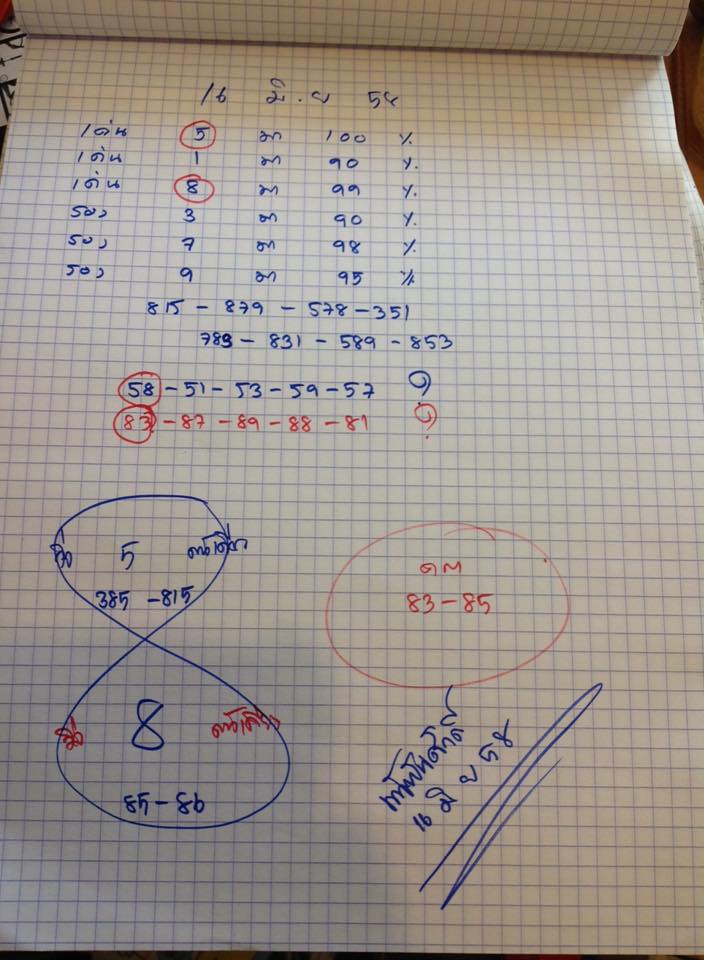 16 มิ.ย 58
เด่น 5 มา 100 %
เด่น 1 มา 90 %
เด่น 8 มา 99 %
รอง 3 มา 90 %
รอง 7 มา 98 %
รอง 9 มา 95 %
815 - 879 - 578 - 351
789 - 831 - 589 - 853
58 - 51 - 53 - 59 - 57 ?
83 - 87 - 89 - 88 - 81 ?
5
385 - 815
83 - 85
8
85 - 86
16 มิ ย 58